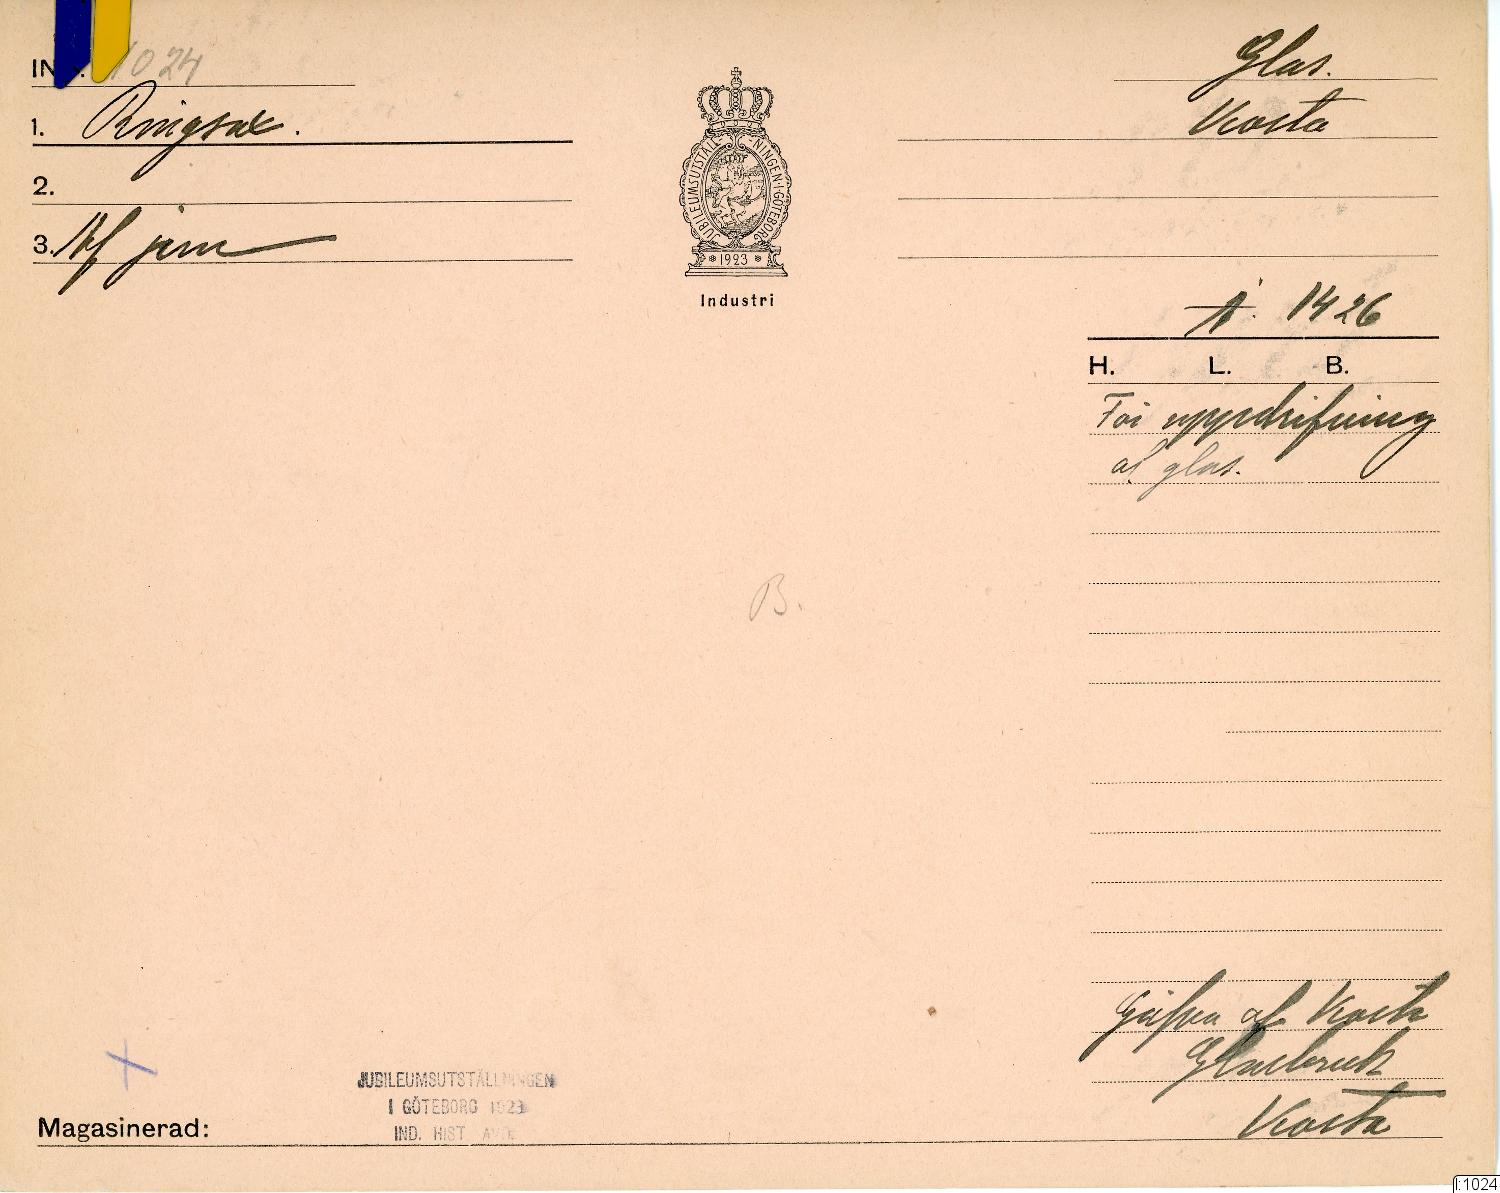 IN 1024
1. Ringsax.
2.
3. Af jern
JUBILEUMSUTSTÄLLNINGEN I GÖTEBORG
* 1923 *
Industri
Glas.
Kosta
1426
H. L. B.
För uppdrifning
af glas.
B.
Gåfva af Kosta
Glasbruk
Kosta
JUBILEUMSUTSTÄLLNINGEN
I GÖTEBORG 1923
IND. HIST
Magasinerad:
I:1024